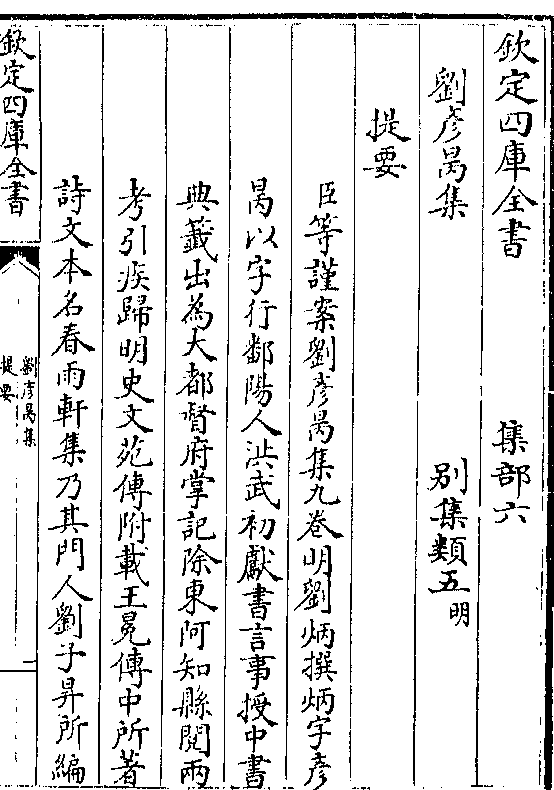 欽定四庫全書 集部六
劉彥昺集 別集類五明
提要
臣等謹案劉彥昺集九卷明劉炳撰炳字彥
昺以字行鄱陽人洪武初獻書言事授中書
典籤出為大都督府掌記除東阿知縣閱兩
考引疾歸明史文苑傳附載王冕傳中所著
詩文本名春雨軒集乃其門人劉子昇所編
欽定四庫全書
劉彥昺集
提要
一